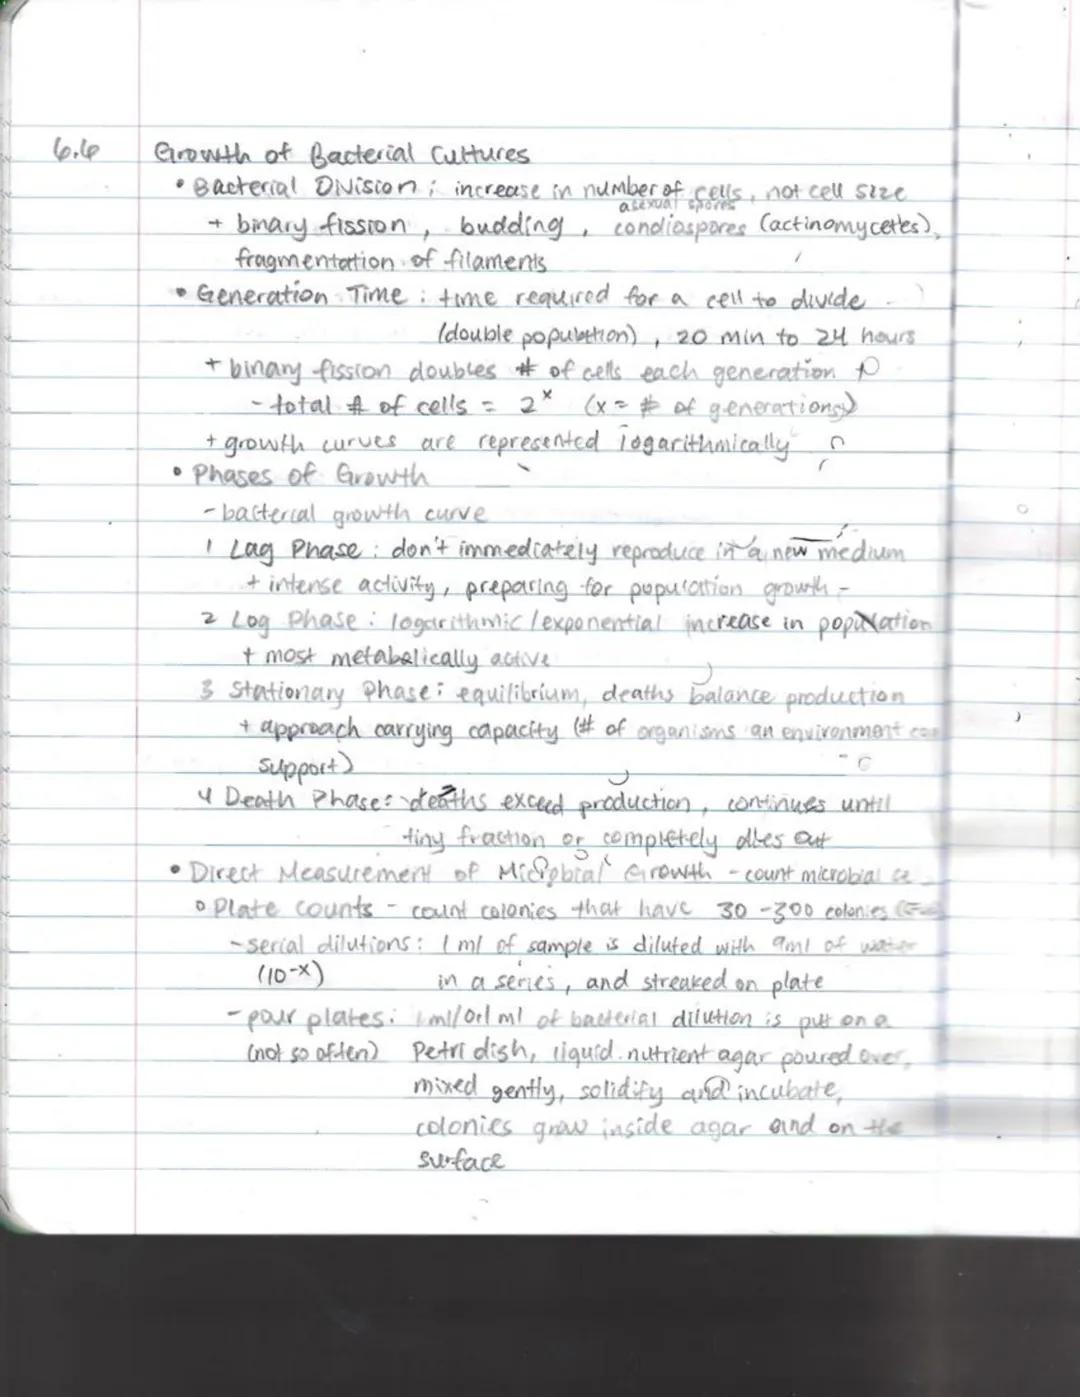 6.6 Growth of Bacterial Cultures
• Bacterial Division: increase in number of cells, not cell size
asexual spores
+ binary fission, budding, condiospores (actinomycetes),
fragmentation of filaments
• Generation Time: time required for a cell to divide
(double population), 20 min to 24 hours
+ binary fission doubles # of cells each generation
- total # of cells = 2^x (x = # of generations)
+ growth curves are represented logarithmically
• Phases of Growth
- bacterial growth curve
1 Lag Phase: don't immediately reproduce in a new medium
+ intense activity, preparing for population growth
2 Log Phase: logarithmic/exponential increase in population
+ most metabolically active
3 Stationary Phase: equilibrium, deaths balance production
+ approach carrying capacity (# of organisms an environment can
support)
4 Death Phase: deaths exceed production, continues until
tiny fraction or completely dies out
• Direct Measurement of Microbial Growth - count microbial
o Plate counts - count colonies that have 30-300 colonies
- serial dilutions: 1 ml of sample is diluted with 9ml of water
(10-x) in a series, and streaked on plate
- pour plates: 1ml/0.1 ml of bacterial dilution is put on a
(not so often) Petri dish, liquid nutrient agar poured over,
mixed gently, solidify and incubate,
colonies grow inside agar and on the
surface